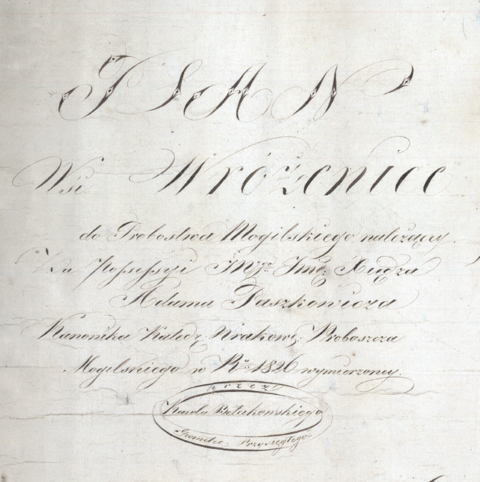 PLAN
Wsi Wróżeniec
do Probostwa Mogilskiego należącey.
Za Possessyi Xiędza
Adama Paszkowicza
Kanonika Katedr. Krakows. Proboszcza
Mogilskiego w R. 1826 wymierzoney.
przez
Karola
Geometrę Przysięgłego